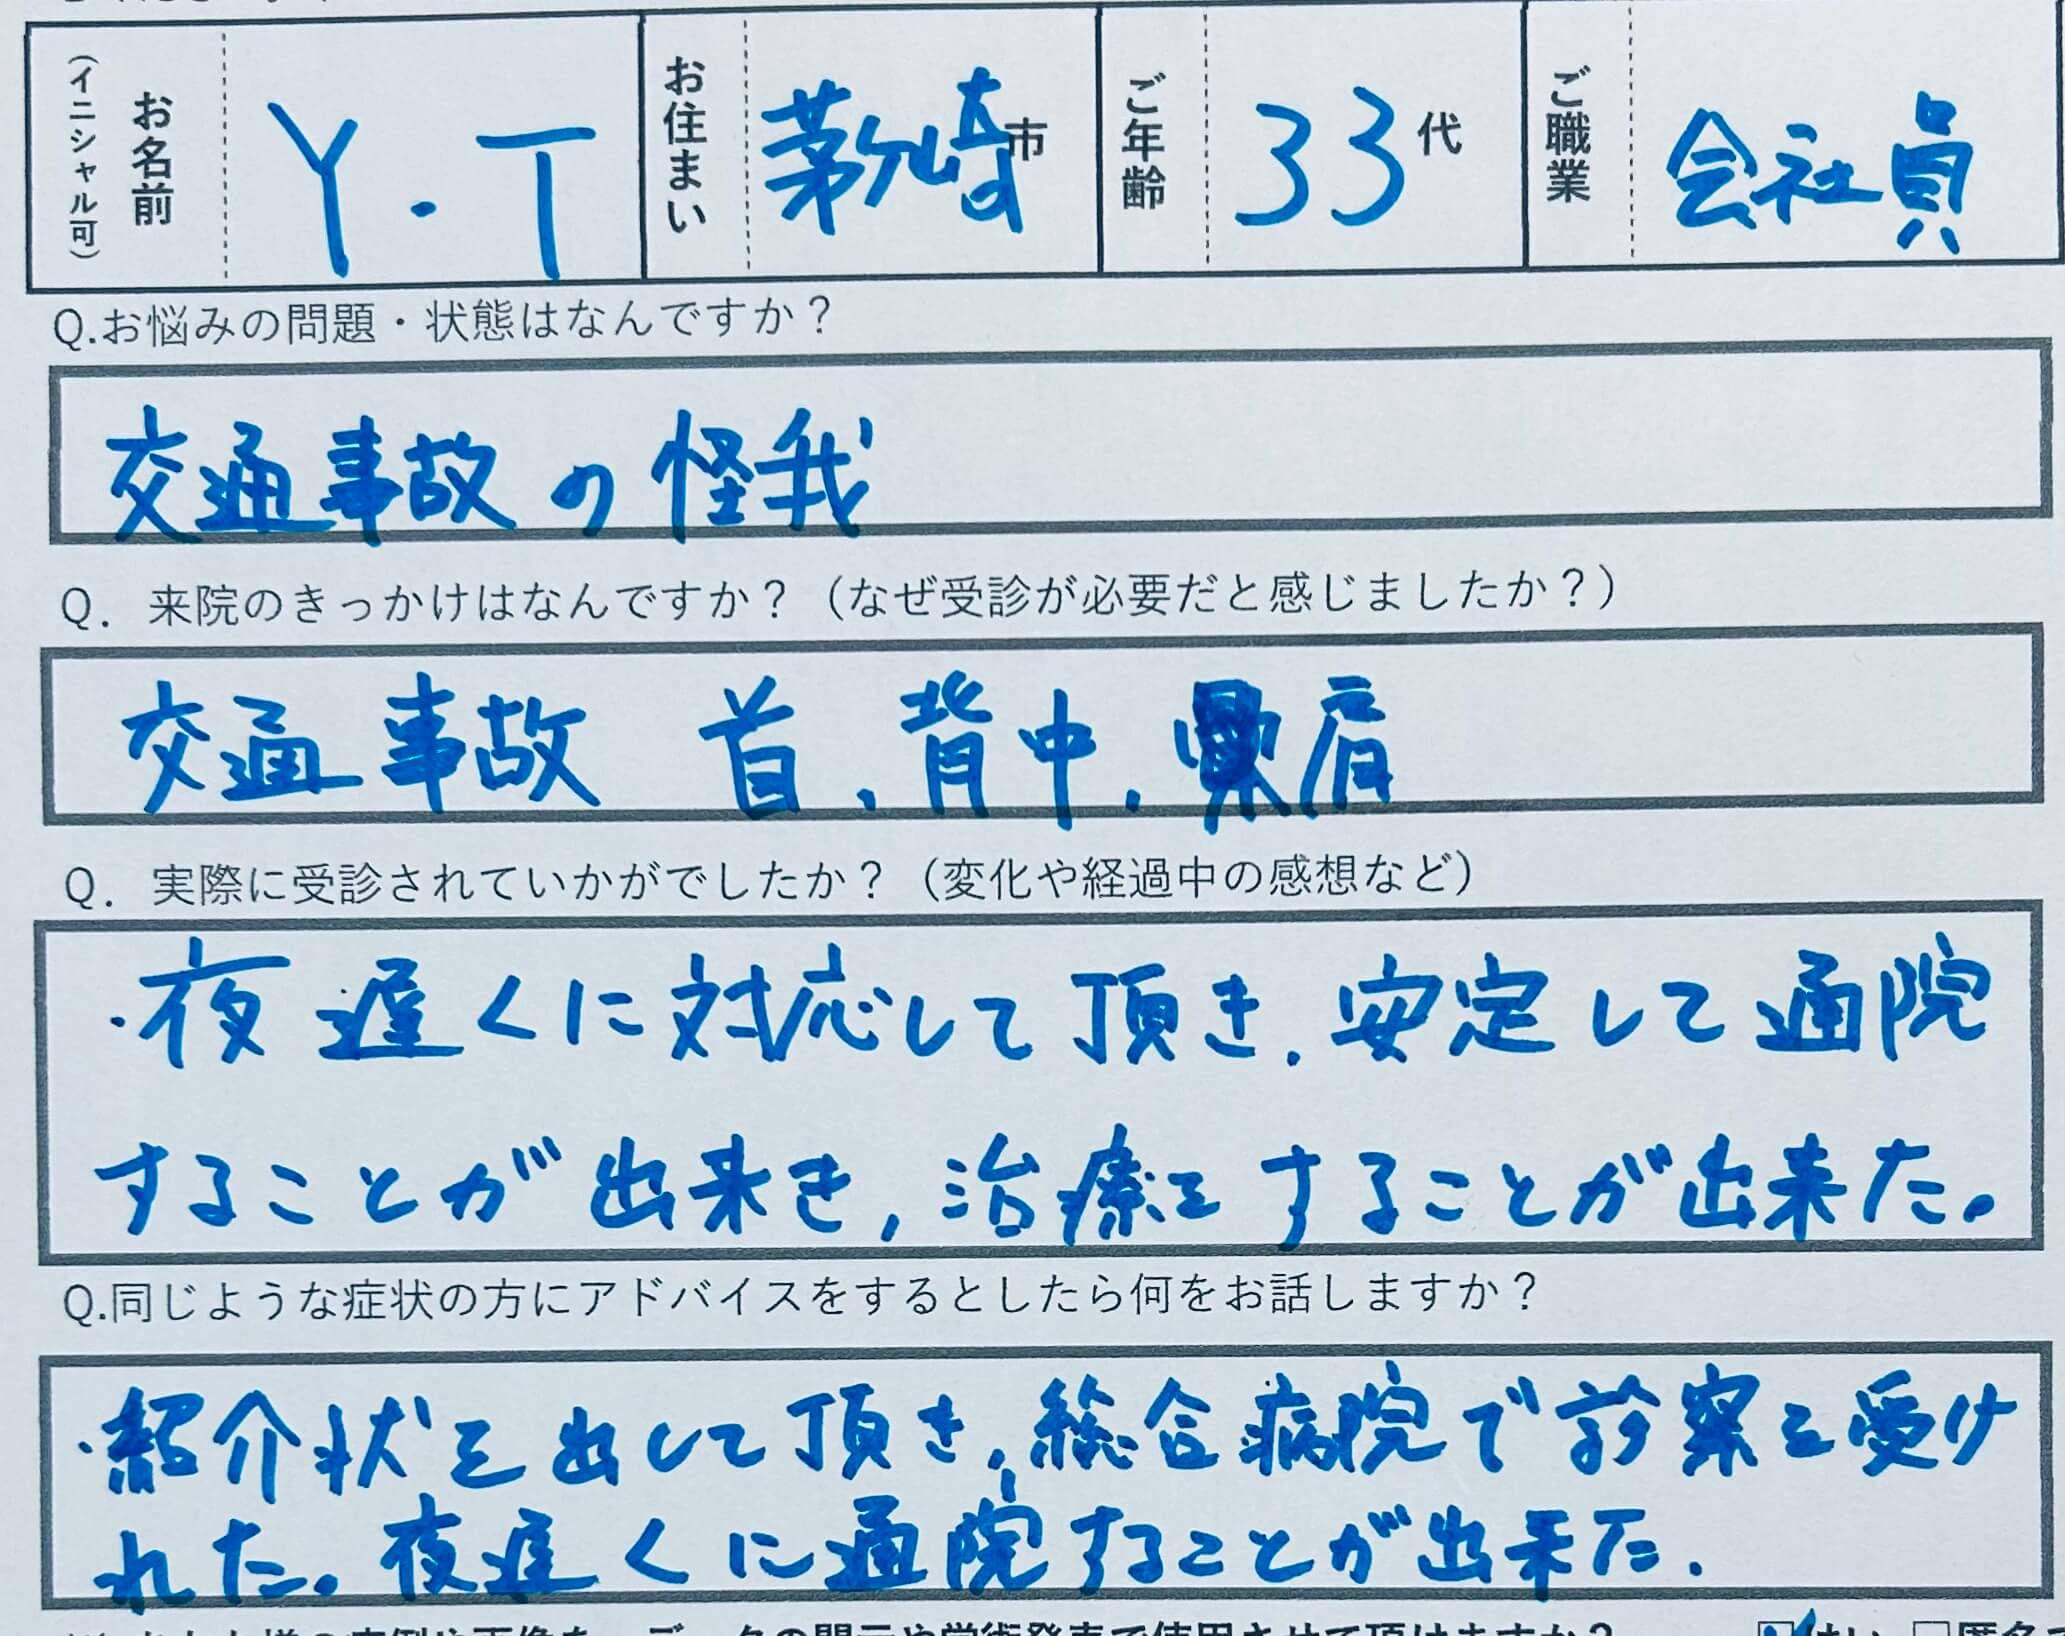 お名前（イニシャル可） Y.T お住まい 茅ヶ崎市 ご年齢 33代 ご職業 会社員
Q.お悩みの問題・状態はなんですか？
交通事故の怪我
Q．来院のきっかけはなんですか？（なぜ受診が必要だと感じましたか？）
交通事故 首、背中、肩
Q．実際に受診されていかがでしたか？（変化や経過中の感想など）
・夜遅くに対応して頂き、安定して通院
することが出来き、治療をすることが出来た。
Q.同じような症状の方にアドバイスをするとしたら何をお話しますか？
・紹介状を出して頂き、総合病院で診察を受け
れた。夜遅くに通院することが出来た.
はい